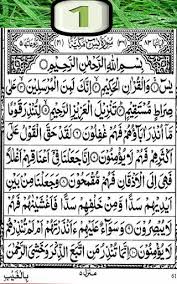 1
سُوْرَةُ يٰسٓ مَكِّيَّةٌ
بِسْمِ اللّٰهِ الرَّحْمٰنِ الرَّحِيْمِ
يٰسٓ ۝ وَالْقُرْاٰنِ الْحَكِيْمِ ۝ اِنَّكَ لَمِنَ الْمُرْسَلِيْنَ ۝ عَلٰى
صِرَاطٍ مُّسْتَقِيْمٍ ۝ تَنْزِيْلَ الْعَزِيْزِ الرَّحِيْمِ ۝ لِتُنْذِرَ قَوْمًا
مَّآ اُنْذِرَ اٰبَآؤُهُمْ فَهُمْ غٰفِلُوْنَ ۝ لَقَدْ حَقَّ الْقَوْلُ عَلٰٓى
اَكْثَرِهِمْ فَهُمْ لَا يُؤْمِنُوْنَ ۝ اِنَّا جَعَلْنَا فِيْٓ اَعْنَاقِهِمْ اَغْلٰلًا
فَهِيَ اِلَى الْاَذْقَانِ فَهُمْ مُّقْمَحُوْنَ ۝ وَجَعَلْنَا مِنْۢ بَيْنِ
اَيْدِيْهِمْ سَدًّا وَّمِنْ خَلْفِهِمْ سَدًّا فَاَغْشَيْنٰهُمْ فَهُمْ
لَا يُبْصِرُوْنَ ۝ وَسَوَآءٌ عَلَيْهِمْ ءَاَنْذَرْتَهُمْ اَمْ لَمْ تُنْذِرْهُمْ
لَا يُؤْمِنُوْنَ ۝ اِنَّمَا تُنْذِرُ مَنِ اتَّبَعَ الذِّكْرَ وَخَشِيَ الرَّحْمٰنَ
بِالْغَيْبِ